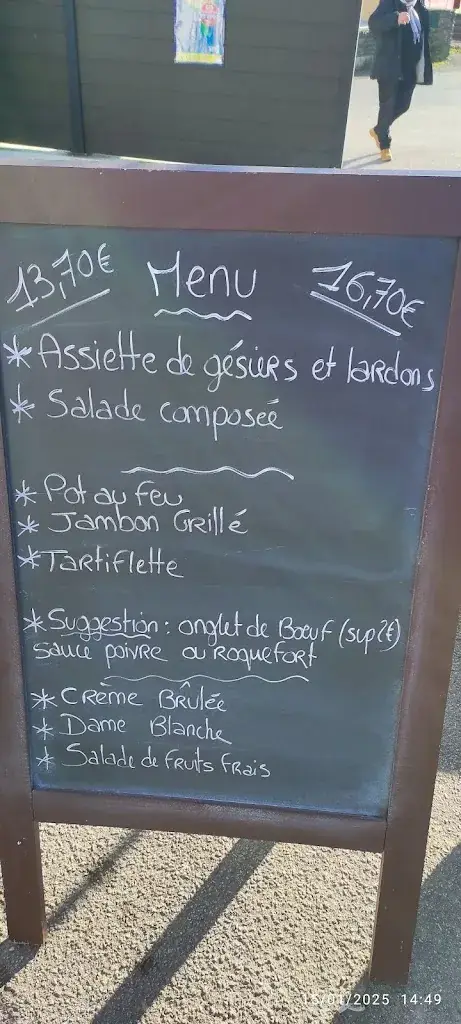 13,70€ Menu 16,70€
* Assiette de gésiers et lardons
* Salade composée
* Pot au feu
* Jambon Grillé
* Tartiflette
* Suggestion : onglet de Bœuf (sup 2€)
sauce poivre ou Roquefort
* Crème Brûlée
* Dame Blanche
* Salade de fruits frais
15/01/2025 14:49